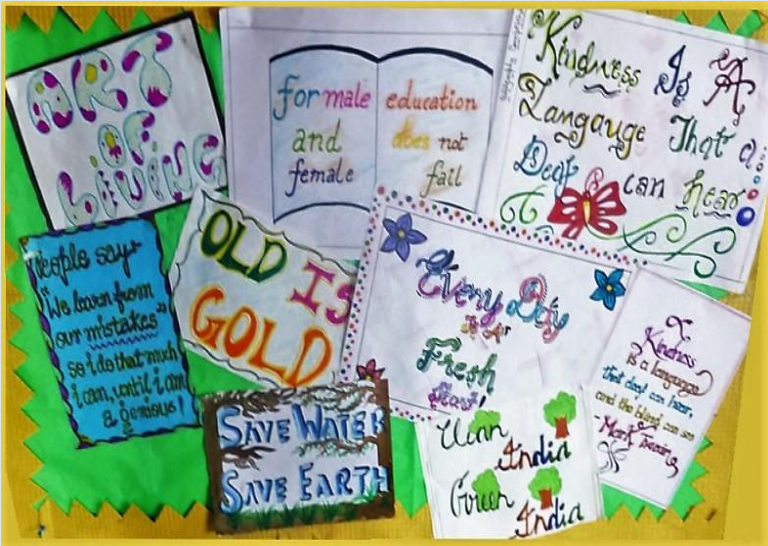 ART
OF
LIVING
for male
and
female
education
does not
fail
Kindness Is A
Langauge That a
Deaf can hear
People say
"We learn from
our mistakes"
so i do that much
i can, until i am
a genious!
OLD IS
GOLD
Every Day
Is A
Fresh
Start!
Kindness
is a language
that deaf can hear,
and the blind can see
- Mark Twain
SAVE WATER
SAVE EARTH
India
Green
India